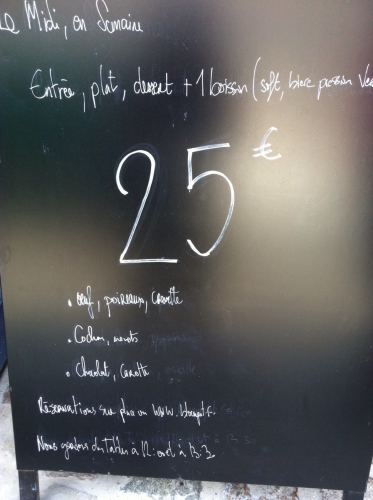 Le Midi, en Semaine
Entrée, plat, dessert + 1 boisson (soft, bière pression
25 €
• œuf, poireaux, carotte
• Cochon, navets
• Chocolat, carotte
Réservations sur place ou www.
Nous gardons des tables à 12:00 et à 13: